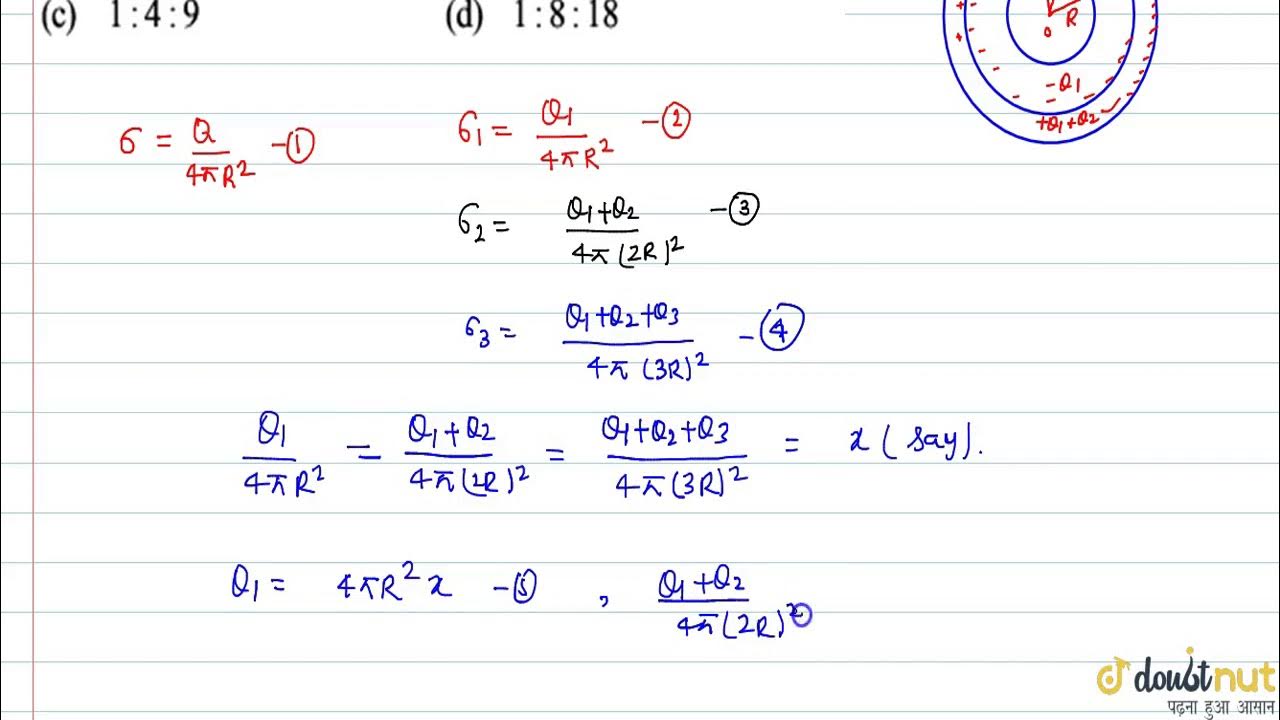 (c) 1 : 4 : 9 (d) 1 : 8 : 18
R
-Q1
+Q1+Q2
σ = Q/4πR² -①
σ1 = Q1/4πR² -②
σ2 = Q1+Q2/4π(2R)² -③
σ3 = Q1+Q2+Q3/4π(3R)² -④
Q1/4πR² = Q1+Q2/4π(2R)² = Q1+Q2+Q3/4π(3R)² = x (say).
Q1 = 4πR²x -⑤ , Q1+Q2/4π(2R)²
doubtnut
पढ़ना हुआ आसान